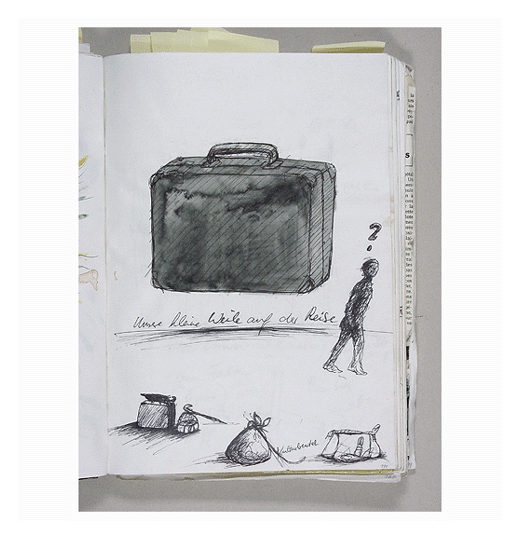 ?
Unsere kleine Weile auf der Reise
Kulturbeutel